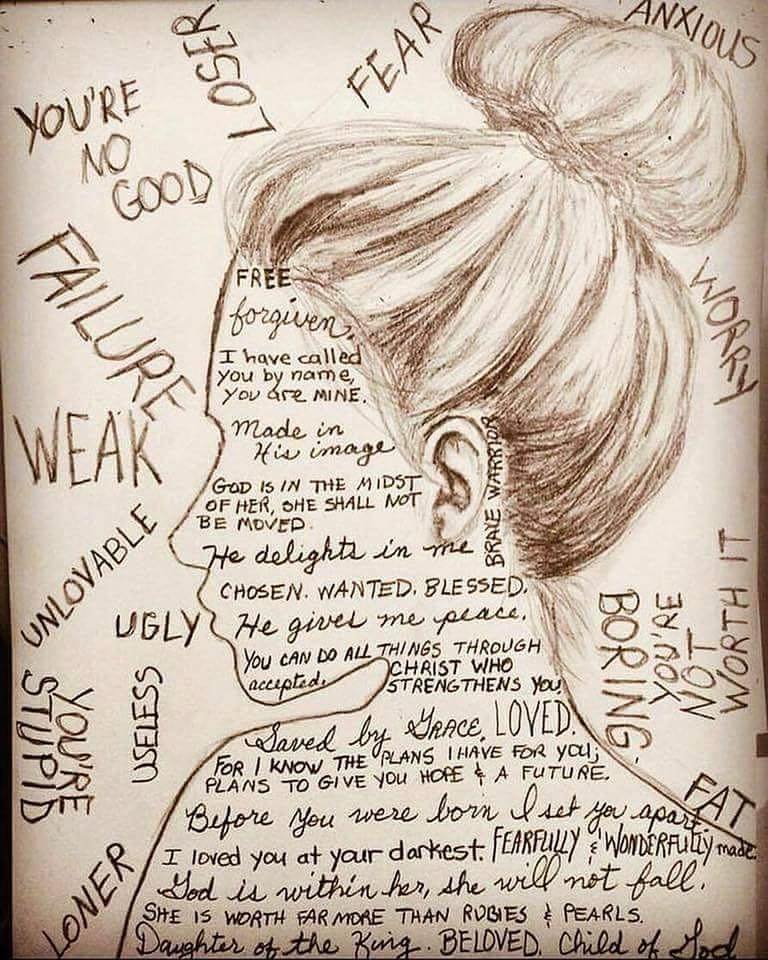 ANXIOUS
LOSER
FEAR
YOU'RE
NO
GOOD
FAILURE
WORRY
WEAK
UNLOVABLE
UGLY
USELESS
YOU'RE
STUPID
LONER
BORING
YOU'RE
NOT
WORTH IT
FAT
FREE
forgiven.
I have called
you by name,
you are MINE.
Made in
His image
GOD IS IN THE MIDST
OF HER, SHE SHALL NOT
BE MOVED.
BRAVE WARRIOR
He delights in me
CHOSEN. WANTED. BLESSED.
He gives me peace.
YOU CAN DO ALL THINGS THROUGH
CHRIST WHO
accepted. STRENGTHENS YOU
Saved by GRACE. LOVED.
FOR I KNOW THE PLANS I HAVE FOR YOU;
PLANS TO GIVE YOU HOPE & A FUTURE.
Before you were born I set you apart.
I loved you at your darkest. FEARFULLY & WONDERFULLY made.
God is within her, she will not fall.
SHE IS WORTH FAR MORE THAN RUBIES & PEARLS.
Daughter of the King. BELOVED. Child of God